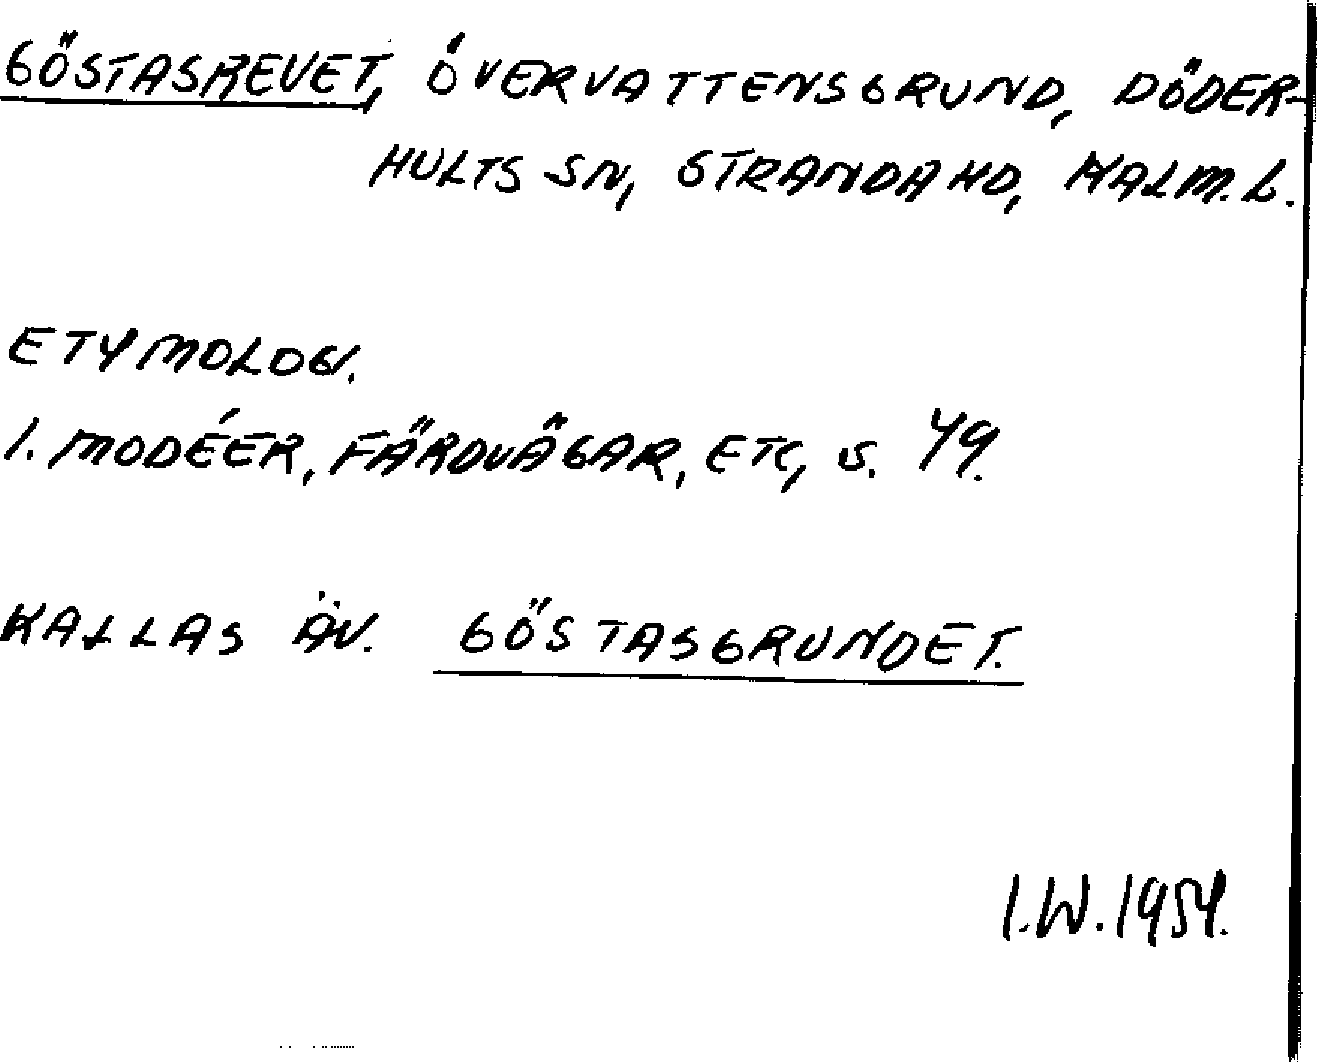 GÖSTASREVET, ÖVERVATTENSGRUND, DÖDER-
HULTS SN, STRANDA HD, KALM. L.
ETYMOLOGI.
I. MODÉER, FÄRDVÄGAR, ETC, S. 49.
KALLAS ÄV. GÖSTASGRUNDET.
I.W. 1954.